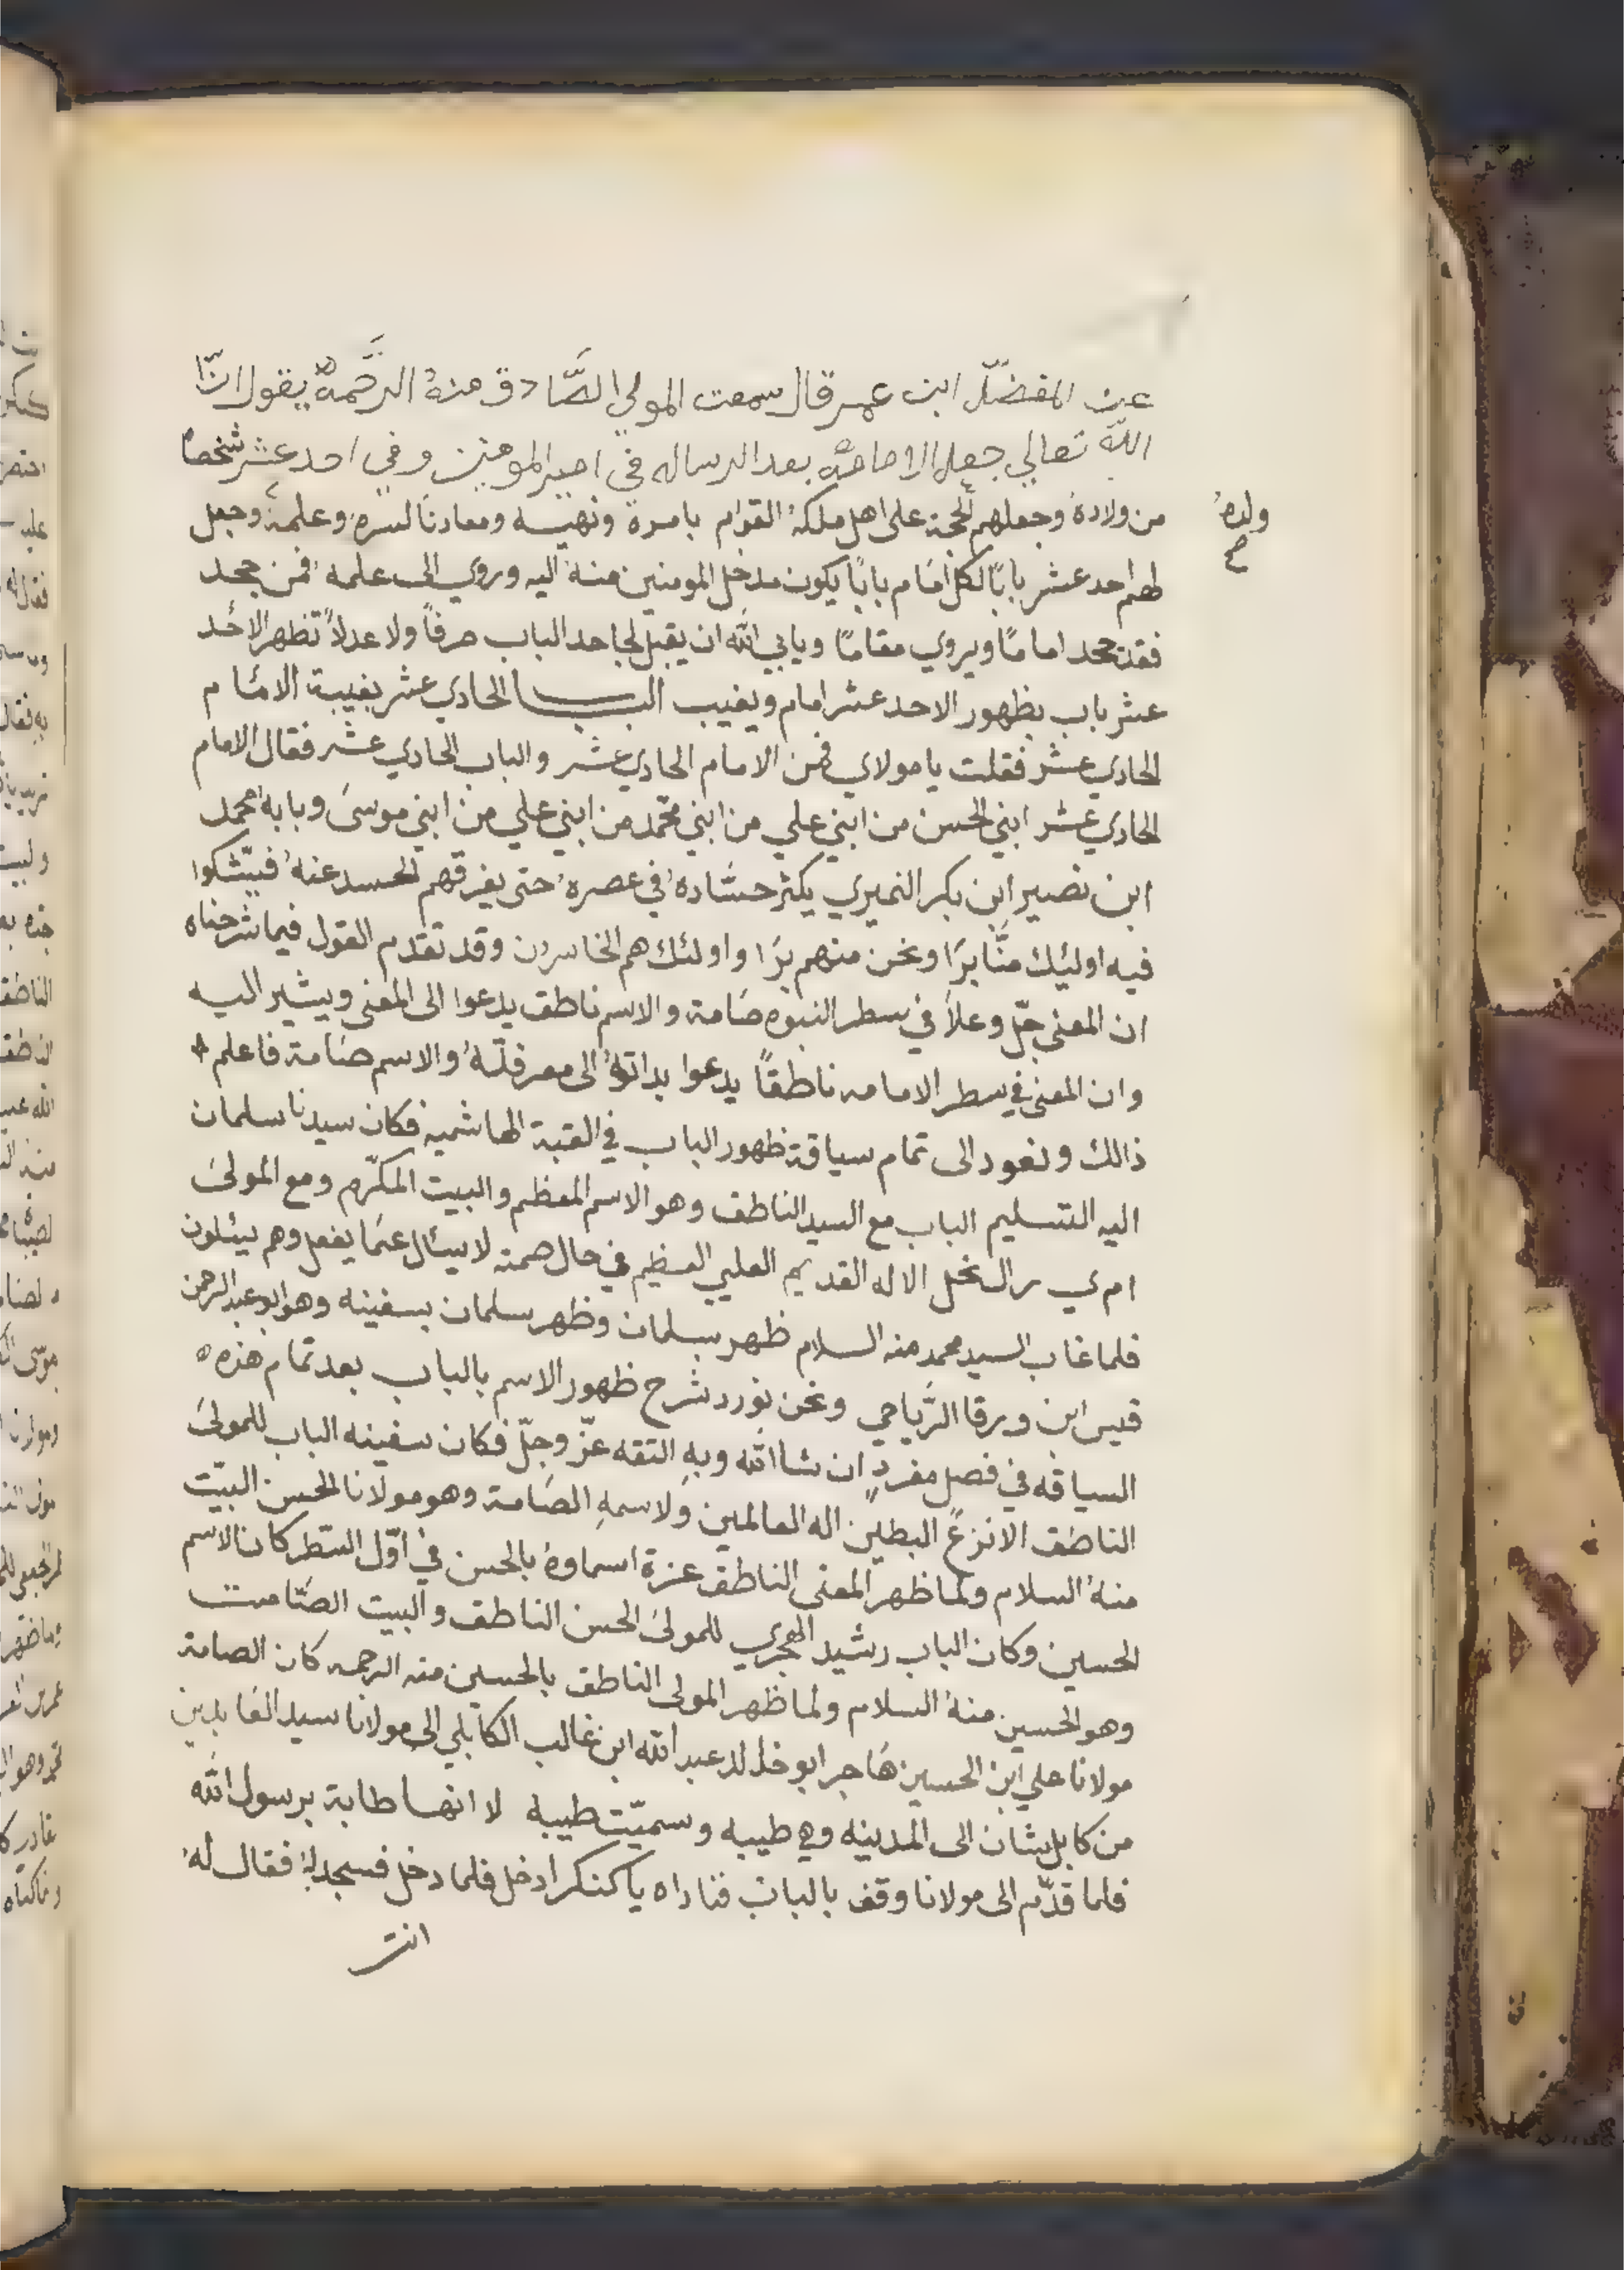 عن المفضّل ابن عمر قال سمعت المولي الصَّادق منهُ الرَّحمةُ يقول انّ
اللّه تعالي جعل الامامة بعد الرساله في امير المومنين وفي احد عشر شخصاً
من ولادهُ وجعلهم لحجة على اهل ملكهُ القوام بامرهُ ونهيه ومعادناً لسرهِ وعلمهُ وجعل
ولدهُ
صح
لهم احد عشر باباً لكل امام باباً يكون مدخل المومنين منهُ اليه وروي الى علمه فمن جحد
فقد جحد اماماً ويروي مقاماً ويابي اللّه ان يقبل لجاحد الباب صرفاً ولا عدلاً تظهر الاحد
عشر باب بظهور الاحد عشر امام ويغيب الباب الحادي عشر بغيبة الامام
الحادي عشر فقلت يا مولاي فمن الامام الحادي عشر والباب الحادي عشر فقال الامام
الحادي عشر ابني الحسن من ابني علي من ابني محمّد من ابني علي من ابني موسى وبابه محمد
ابن نصير ابن بكر النميري يكثر حسّادهُ في عصرهِ حتى يفرقهم الحسد عنهُ فيتّشكوا
فيه اوليئك منَّا برَا ونحن منهم برَا واولئك هم الخاسرون وقد تقدم القول فيما شرحناه
ان المعنى جلّ وعلا في سطر النبوه صامة والاسم ناطق يدعوا الى المعنى ويشير اليه
وان المعنى في سطر الامامه ناطقاً يدعوا بداتهُ الى معرفتهُ والاسم صامة فاعلم
ذالك ونعود الى تمام سياقة ظهور الباب في القبة الهاشميه فكان سيدنا سلمان
اليه التسليم الباب مع السيد الناطق وهو الاسم المعظم والبيت المكرّم ومع المولى
ام ي ر ال نحل الاله القديم العلي العظيم في حال صمته لا يسال عمّا يفعل وهم يسئلون
فلما غاب السيد محمد منه السلام ظهر بسلمان وظهر سلمان بسفينه وهو ابو عبد الرحمن
قيس ابن ورقا الرّياحي ونحن نورد شرح ظهور الاسم بالباب بعد تمام هذه
السياقه في فصل مفردٍ ان شا اللّه وبهِ التقه عزّ وجلّ فكان سفينه الباب للمولى
الناطق الانزع البطين اله العالمين ولاسمهِ الصامة وهو مولانا الحسن البيّت
منهُ السلام ولما ظهر المعنى الناطق عزة اسماوهُ بالحسن في اوّل السّطر كان الاسم
الحسين وكان الباب رشيد الهجري للمولى الحسن الناطق والبيت الصّامت
وهو الحسين منهُ السلام ولما ظهر المولى الناطق بالحسين منه الرحمه كان الصامة
مولانا علي ابن الحسين هَاجر ابو خالد عبد اللّه ابن غالب الكابلي الى مولانا سيد العابدين
من كابل شان الى المدينه وهي طيبه وسميّت طيبه لا انها طابة برسول اللّه
فلما قدّم الى مولانا وقف بالباب فناداه يا كنكر ادخل فلما دخل فسجد لهُ فقال لهُ
انت